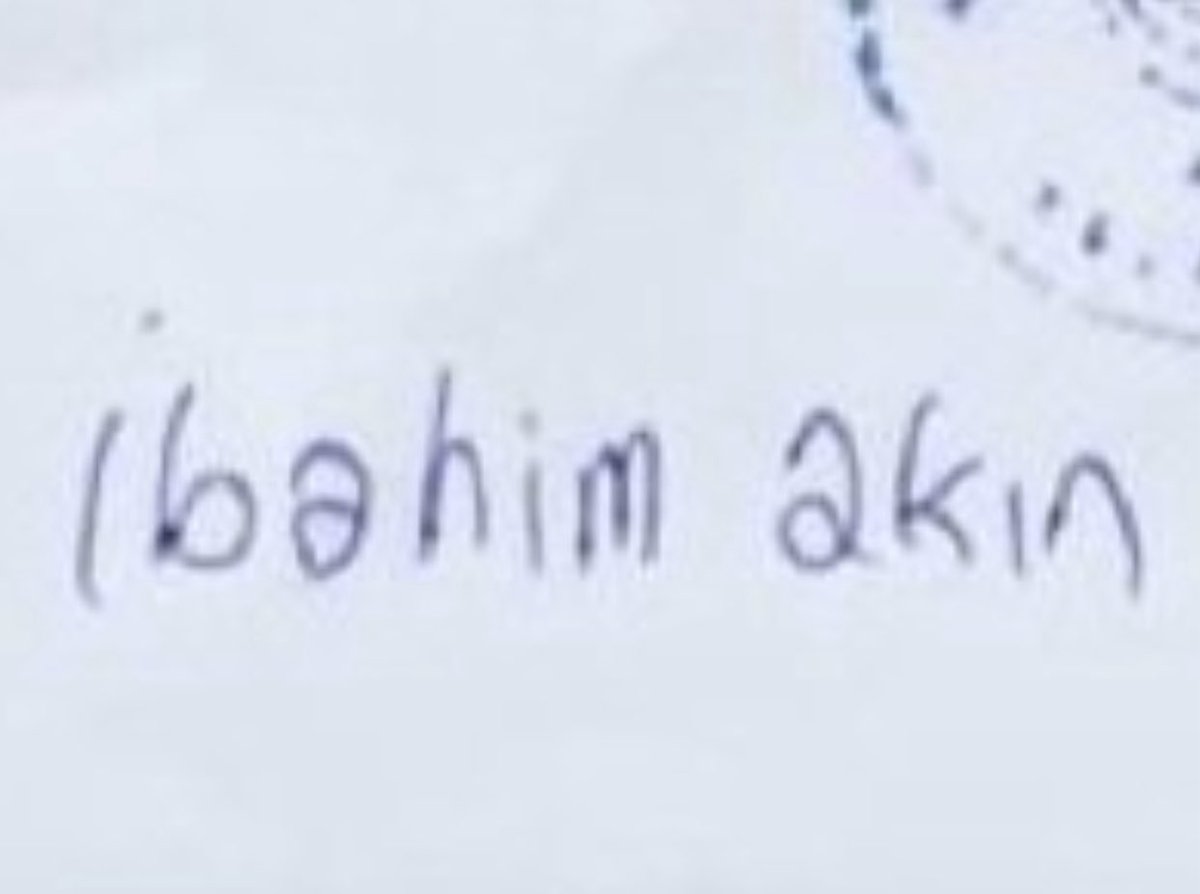 İbahim akın